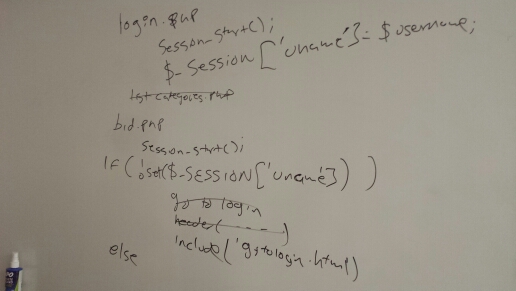 login.php
session_start();
$_SESSION['uname']= $username;
list categories.php
bid.php
session_start();
If(!isset($_SESSION['uname']))
go to login
header(-----)
include('gotologin.html)
else